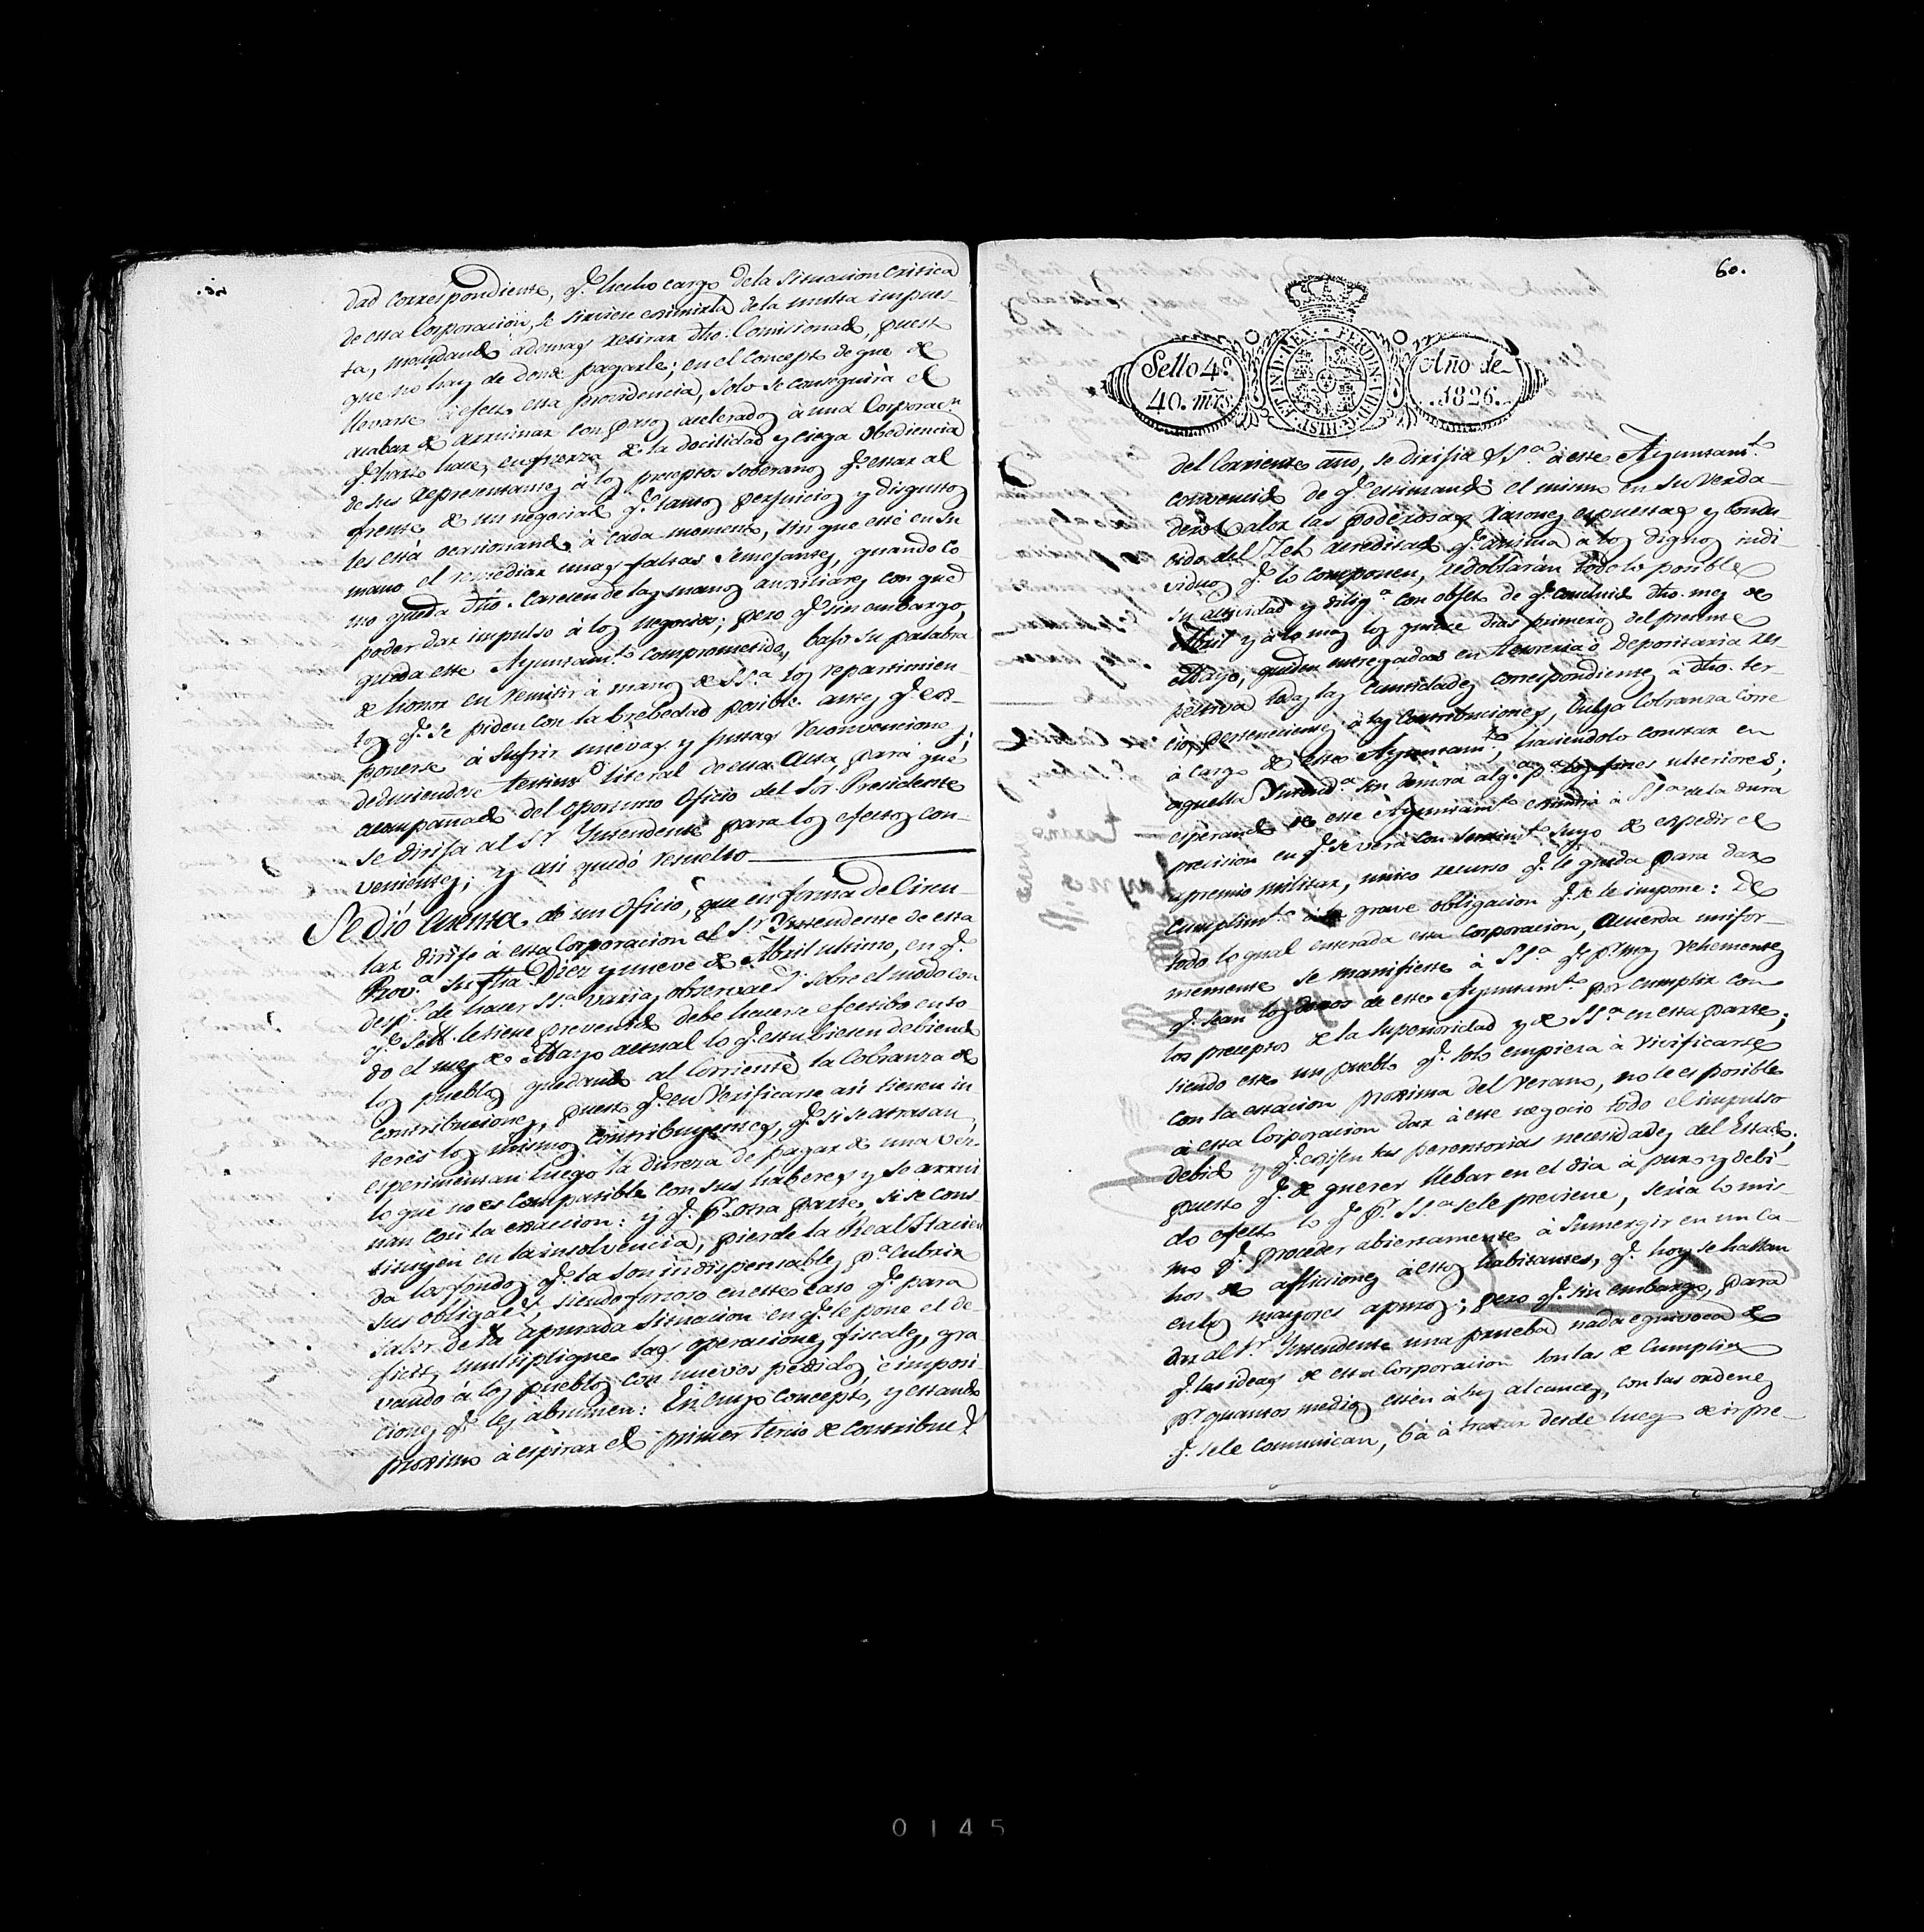 dad correspondiente, q.e hecho cargo de la Situacion Critica
de esta Corporacion, se sirviese eximirla de la multa impues-
ta, mandando ademas retirar dho. Comisionado, puesto
que no hay de donde pagarle; en el Concepto de que de
llevarse á efecto esta providencia, solo se conseguirá el
acabar de arruinar con pasos acelerados á una Corporac.n
q.e harto hace, en fuerza de la docilidad y ciega obediencia
de sus representantes á los preceptos soberanos q.e estar al
frente de un negociado q.e tantos perjuicios y disgustos
les está ocasionando á cada momento, sin que esté en su
mano el remediar unas faltas semejantes, quando co
mo queda dho. carecen de las manos auxiliares con que
poder dar impulso á los negocios; pero q.e sin embargo,
queda este Ayuntam.to comprometido, bajo su palabra
de honor en remitir á manos de SS.a los repartimien-
tos q.e se piden con la brebedad posible antes q.e es-
ponerse á sufrir nuevas y justas reconvenciones;
deduciendose testim.o literal de esta Acta, para que
acompañado del oportuno Oficio del Sor. Presidente
se dirija al S.r Yntendente para los efectos con-
venientes; y asi quedó resuelto
Se dió Cuenta de un Oficio, que en forma de Circu-
lar dirije á esta Corporacion el S.r Yntendente de esta
Prov.a su fha Diez y nueve de Abril ultimo, en q.e
desp.s de hacer SS.a varias observac.s sobre el modo con
q.e S.M. le tiene prevenido debe hacerse efectibo en to
do el mes de Mayo actual lo q.e estubiesen debiendo
los pueblos quedando al Corriente la Cobranza de
contribuciones, puesto q.e en verificarse asi tienen in
terés los mismos contribuyentes, q.e si se atrasan,
esperimentan luego la dureza de pagar de una vez
lo que no es compatible con sus haberes y se arrui
nan con la exaccion: y q.e p.r otra parte, si se cons-
tituyen en la insolvencia, pierde la Real Hacien
da los fondos q.e la son indispensables p.a cubrir
sus obligac.s, siendo forzoso en este caso q.e para
salir de la apurada situacion en q.e le pone el de
ficit, multiplique las operaciones fiscales, gra
vando á los pueblos con nuevos pedidos, é imposi
ciones q.e les abrumen: En cuyo concepto, y estando
proximo á espirar el primer tercio de contribuc.s
60.
Sello 4.º
40. mrs.
HISP. ET IND. REX. FERDIN. VII. D. G.
Año de
1826.
del Corriente año, se dirijia SS.a á este Ayuntam.to
convencido de q.e estimando el mismo en su verda-
dero valor las poderosas razones espuestas y condu
cido del Zelo acreditado q.e anima á los dignos indi-
viduos q.e lo componen, redoblarán todo lo posible
su actividad y dilig.a con objeto de q.e concluido dho. mes de
Abril y á lo mas los quince dias primeros del presente
Mayo, queden entregadas en tesoreria ó Depositaria res-
pectiva todas las Cantidades correspondientes á dho. ter-
cio, pertenecientes á las Contribuciones, Cuya Cobranza corre
á cargo de este Ayuntam.to, haciendolo constar en
aquella Yntend.a sin demora alg.a p.a los fines ulteriores;
esperando de este Ayuntam.to evitaria á SS.a de la dura
precision en q.e se verá con sentim.to suyo de espedir el
apremio militar, unico recurso q.e le queda para dar
cumplim.to á la grave obligacion q.e se le impone: De
todo lo qual enterada esta Corporacion, Acuerda unifor-
memente se manifieste á SS.a q.e p.r mas vehementes
q.e sean los deseos de este Ayuntam.to por cumplir con
los preceptos de la Superioridad y de SS.a en esta parte;
siendo este un pueblo q.e solo empieza á vivificarse
con la estacion proxima del verano, no le es posible
á esta Corporacion dar á este negocio todo el impulso
debido y q.e exijen las perentorias necesidades del Estado;
puesto q.e de querer llebar en el dia á puro y debi-
do efecto lo q.e p.r SS.a se le previene, seria lo mis-
mo q.e proceder abiertamente á sumergir en un ca-
hos de aflicciones á estos habitantes, q.e hoy se hallan
en los mayores apuros; pero q.e sin embargo, para
dar al S.r Yntendente una prueba nada equivoca de
q.e las ideas de esta Corporacion son las de Cumplir
p.r quantos medios estén á sus alcances, con las ordenes
q.e se le comunican, bá á tratar desde luego de irpre-
0145